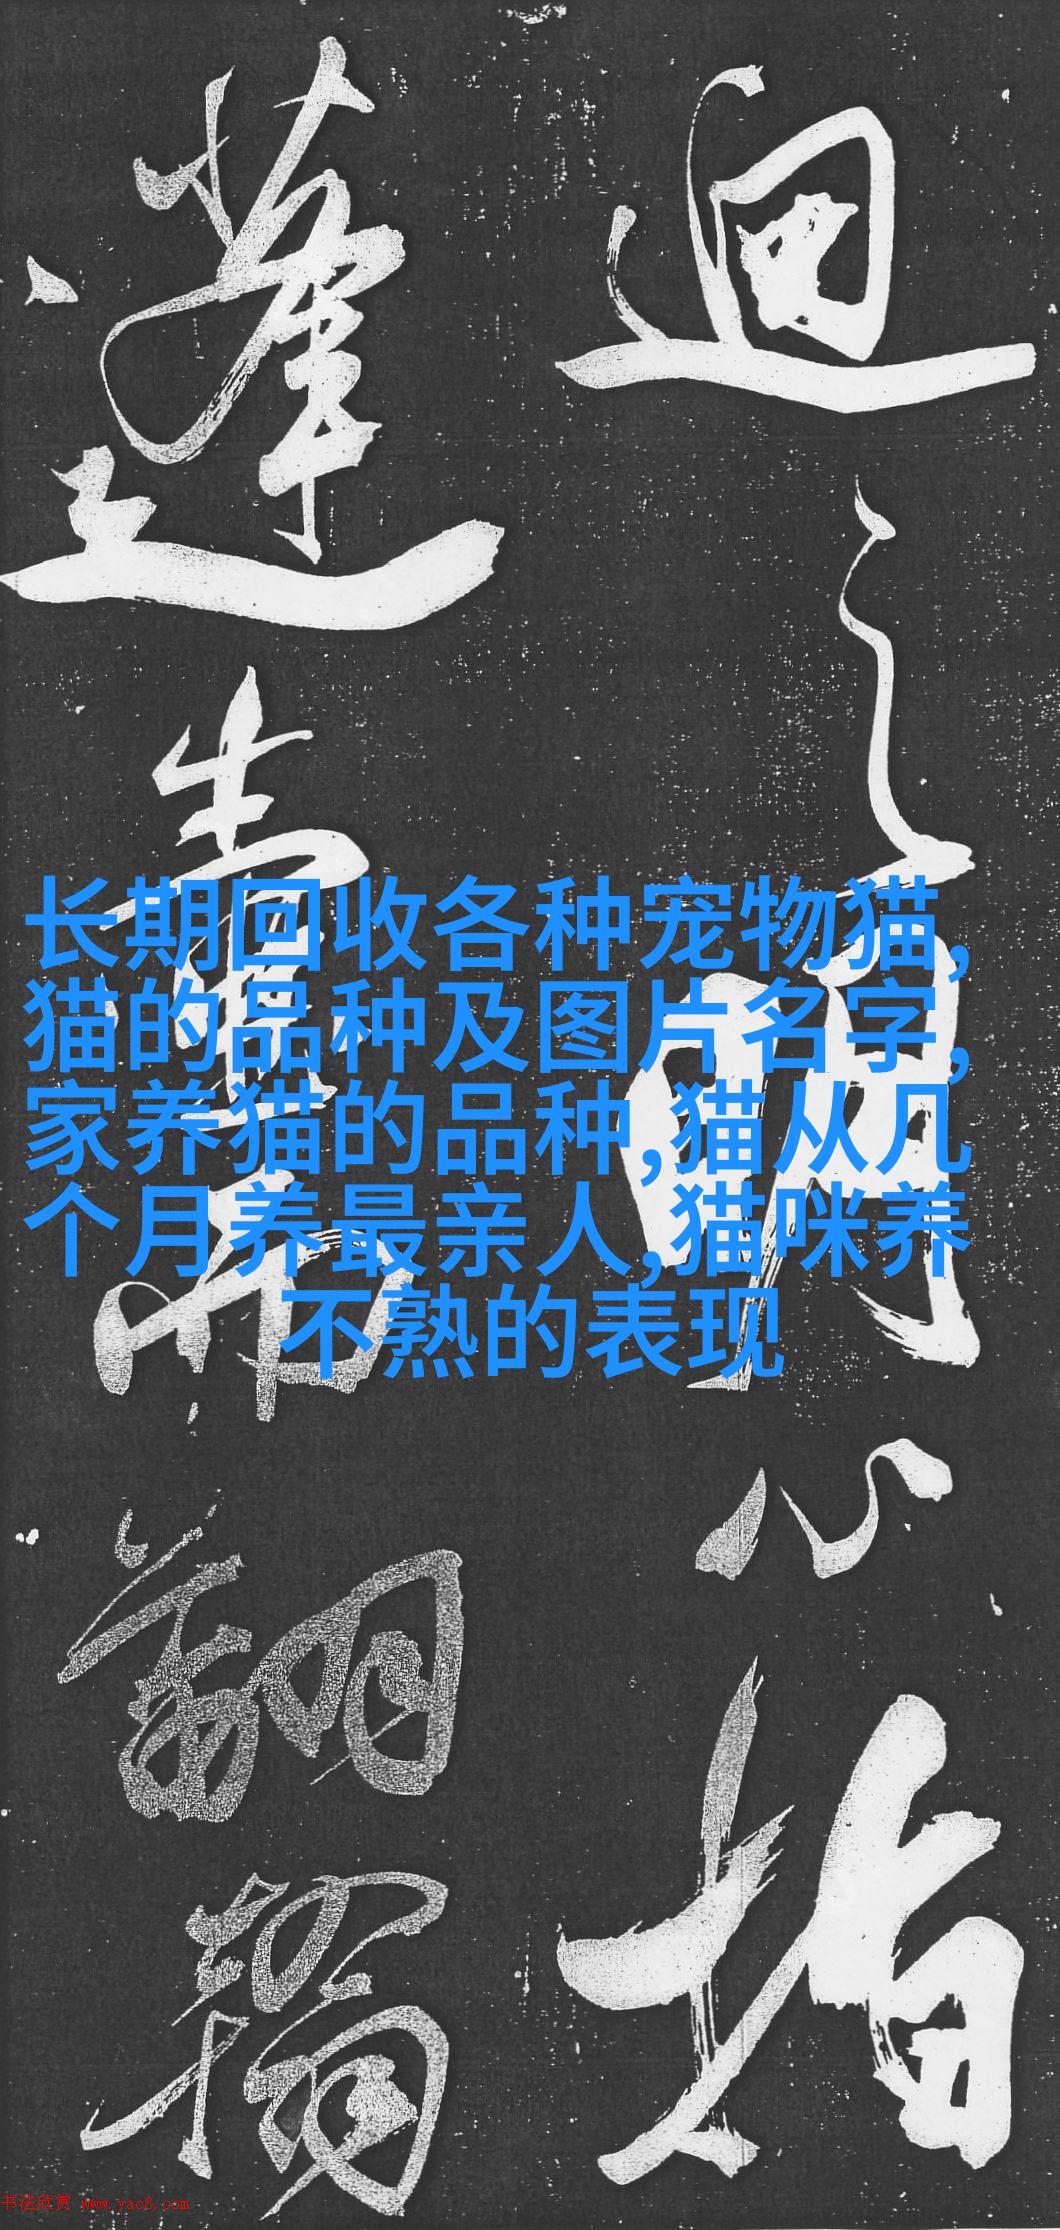 迴之間以指
蓬而翻翰
长期回收各种宠物猫,
猫的品种及图片名字,
家养猫的品种,猫从几
个月养最亲人,猫咪养
不熟的表现
书法欣赏 www.yac8.com